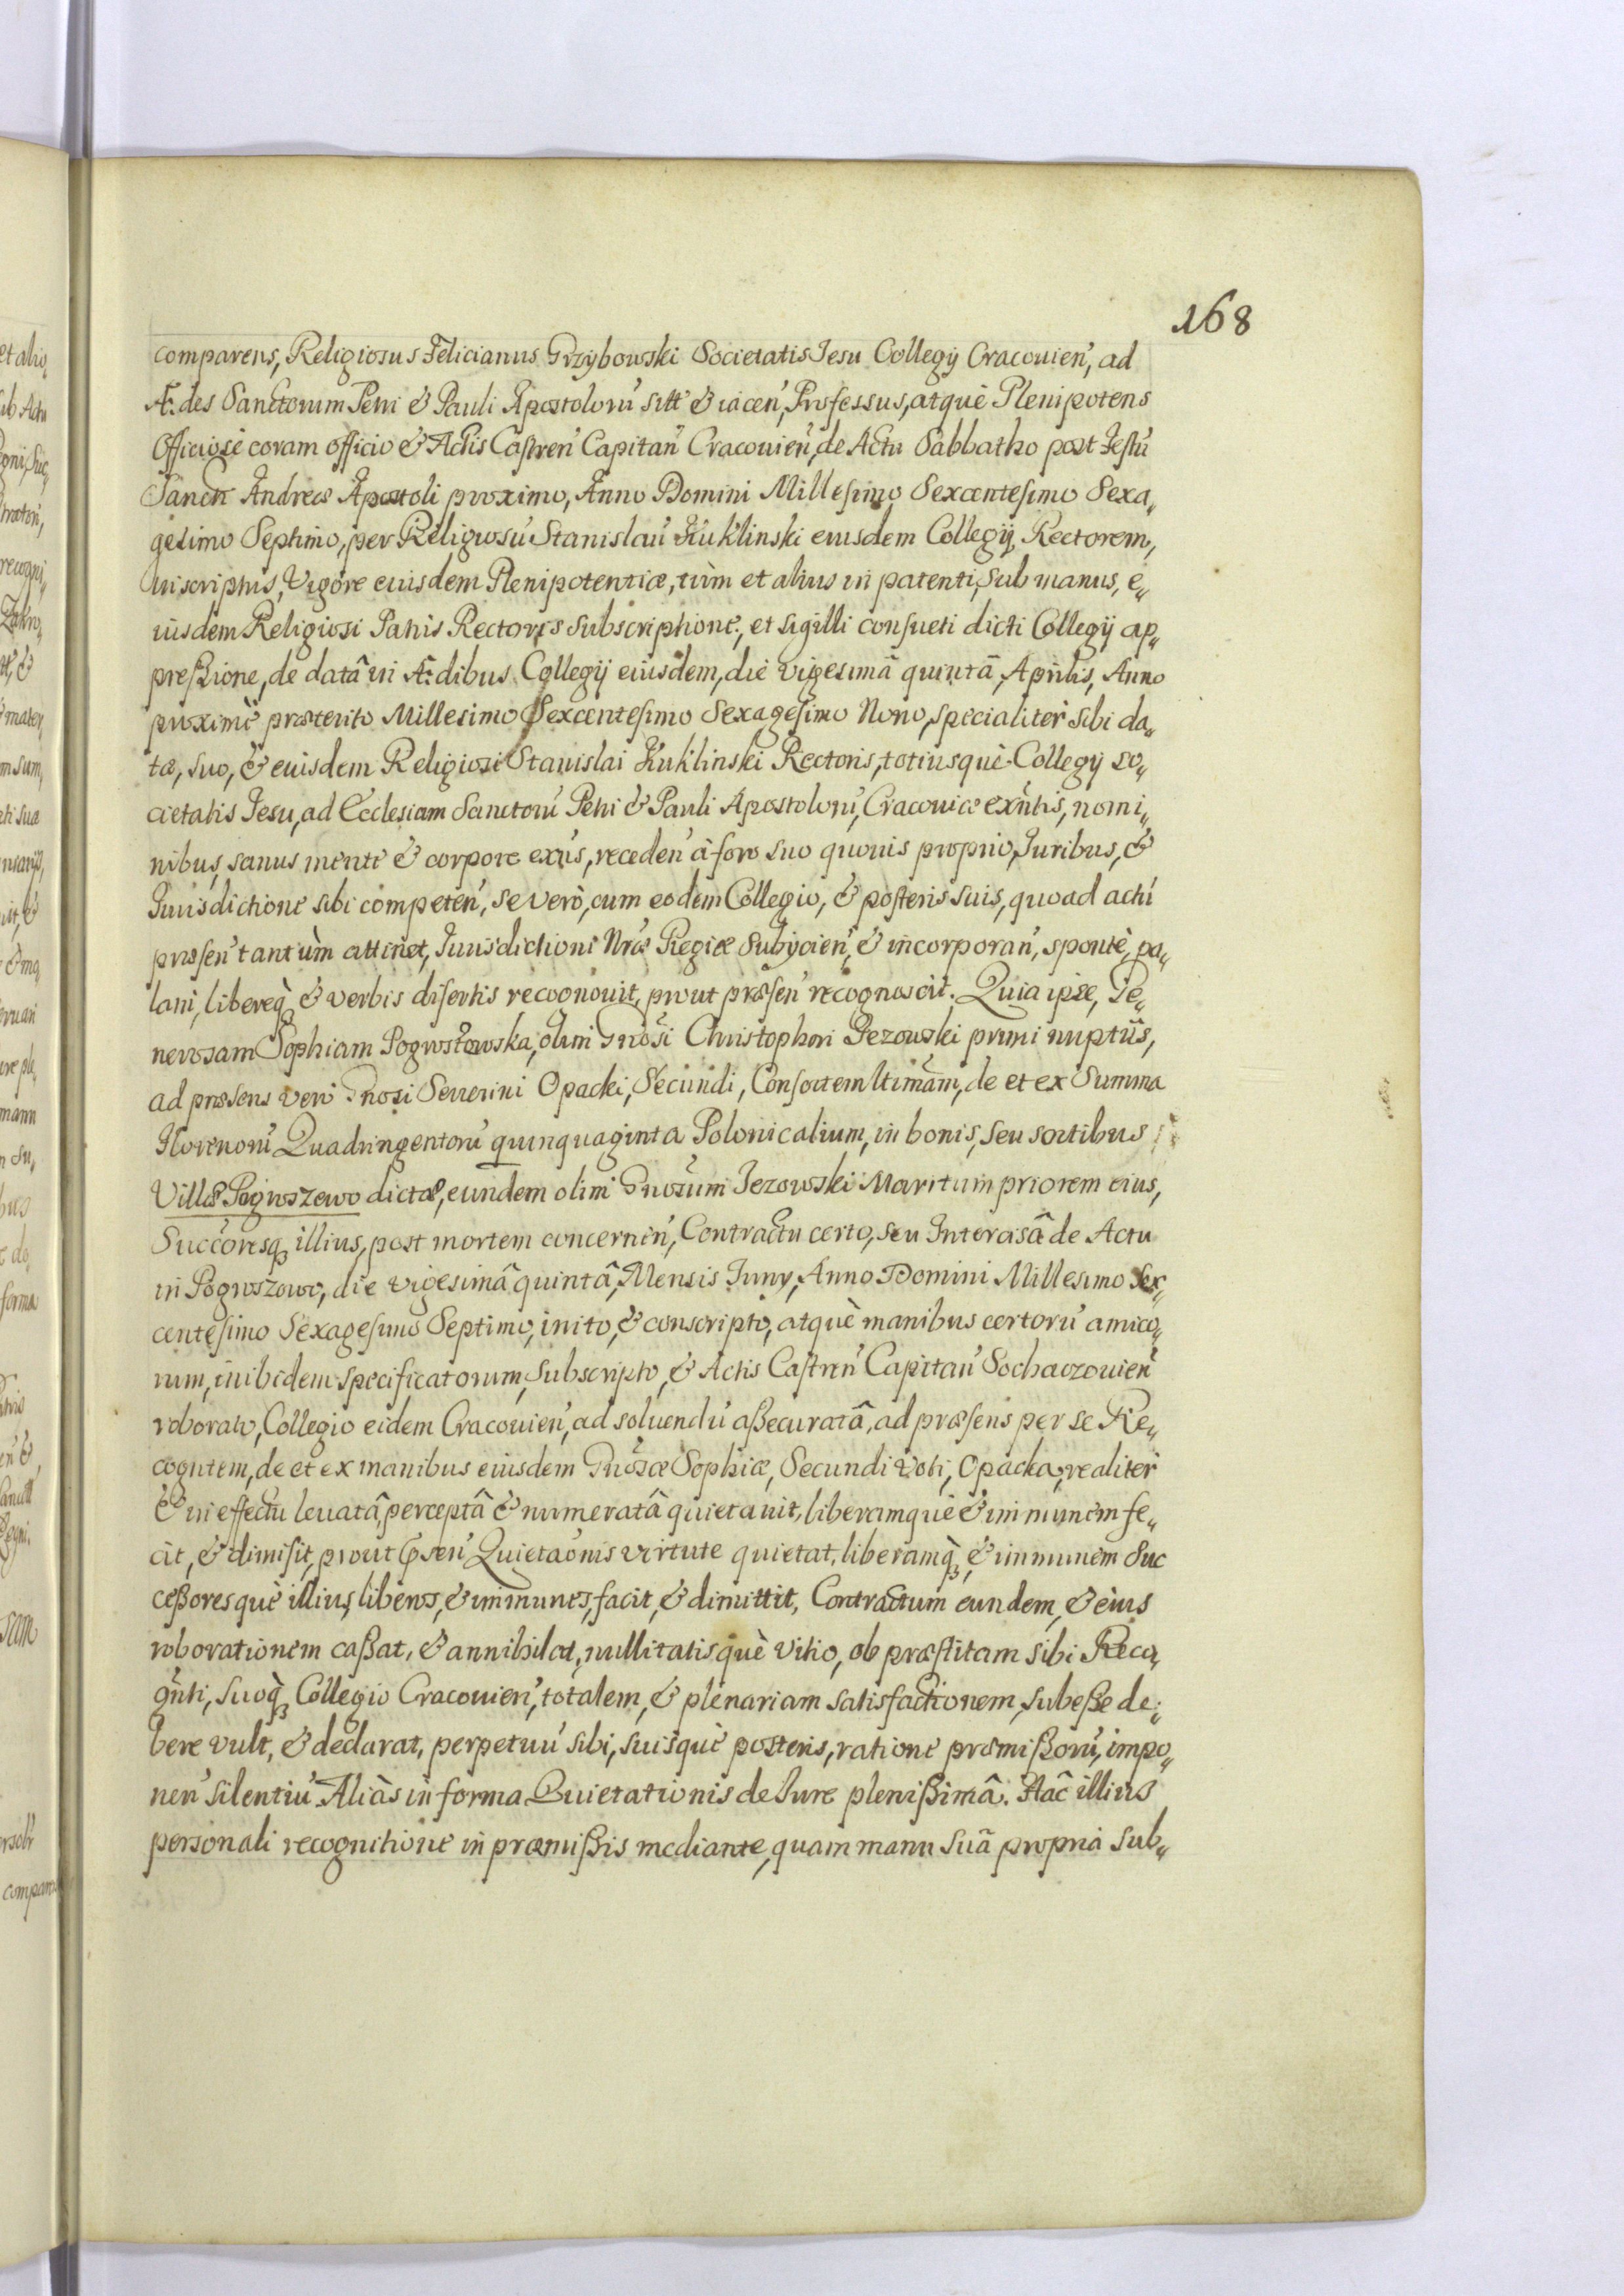 168
comparens, Religiosus Felicianus Grzybowski Societatis Iesu Collegij Cracouien̄, ad
Ædes Sanctorum Petri & Pauli Apostolorū sitt & iacen̄, Professus, atquè Plenipotens
Officiosè coram officio & Actis Castren̄ Capitan̄ Cracouien̄, de Actu Sabbatho post Festū
Sancti Andreæ Apostoli proximo, Anno Domini Millesimo Sexcentesimo Sexa„
gesimo Septimo, per Religiosū Stanislaū Kuklinski eiusdem Collegij Rectorem,
inscriptus, Vigore eiusdem Plenipotentiæ, tùm et alius in patenti, sub manus, e„
iusdem Religiosi Patris Rectoris subscriptione, et sigilli consueti dicti Collegij ap„
preßione, de datâ in Ædibus Collegij eiusdem, die vigesimâ quintâ, Aprilis, Anno
proximè præterito Millesimo Sexcentesimo Sexagesimo Nono, specialiter sibi da„
tæ, suo, & eiusdem Religiosi Stanislai Kuklinski Rectoris, totiusquè Collegij so„
cietatis Iesu, ad Ecclesiam Sanctorū Petri & Pauli Apostolorū, Cracouiæ exn̄tis, nomi„
nibus, sanus mente & corpore exn̄s, receden̄ à foro suo quouis proprio, Iuribus, &
Iurisdictione sibi competen̄, se verò, cum eodem Collegio, & posteris suis, quoad actū
præsen̄ tantùm attinet, Iurisdictioni Nræ Regiæ Subijcien̄, & incorporan̄, spontè, pa„
lam, libereq₃ & verbis disertis recognouit, prout præsen̄ recognoscit. Quia ipse, Ge„
nerosam Sophiam Pogroszowska, olim Gnōsi Christophori Jezowski primi nuptijs,
ad præsens verò Gnosi Seuerini Opacki, Secundi, Consortem ltimam, de et ex Summa
Florenorū Quadringentorū quinquaginta Polonicalium, in bonis, seu sortibus
Villæ Pogroszewo dictæ, eundem olim Gnosum Jezowski Maritum priorem eius,
Succoresq₃ illius, post mortem concernen̄, Contractu certo, seu Intercisâ de Actu
in Pogroszowo, die vigesimâ quintâ, Mensis Iuny, Anno Domini Millesimo Sex„
centesimo Sexagesimo Septimo, inito, & conscripto, atquè manibus certorū amico„
rum, inibidem specificatorum, subscripto, & Actis Castren̄ Capitan̄ Sochaczouien̄
roborato, Collegio eidem Cracouien̄, ad soluendū aßecuratâ, ad præsens per se Re„
cogntem, de et ex manibus eiusdem Gnosæ Sophiæ, Secundi Voti, Opacka, realiter
& in effectu leuatâ, perceptâ & numeratâ quietauit, liberamquè & immunem fe„
cit, & dimisit, prout p̄sen̄ Quietaōnis virtute quietat, liberamq₃, & immunem Suc
ceßoresquè illius, liberos, & immunes, facit, & dimittit, Contractum eundem, & eius
roborationem caßat, & annihilat, nullitatisquè vitio, ob præstitam sibi Reco„
gn̄ti, suoq₃ Collegio Cracouien̄, totalem, & plenariam satisfactionem, subeße de„
bere vult, & declarat, perpetuū sibi, suisquè posteris, ratione præmißorū, impo„
nen̄ silentiū. Aliàs in forma Quietationis de Iure plenißimâ. Hac illius
personali recognitione in præmißis mediante, quam manu suâ propriâ sub„